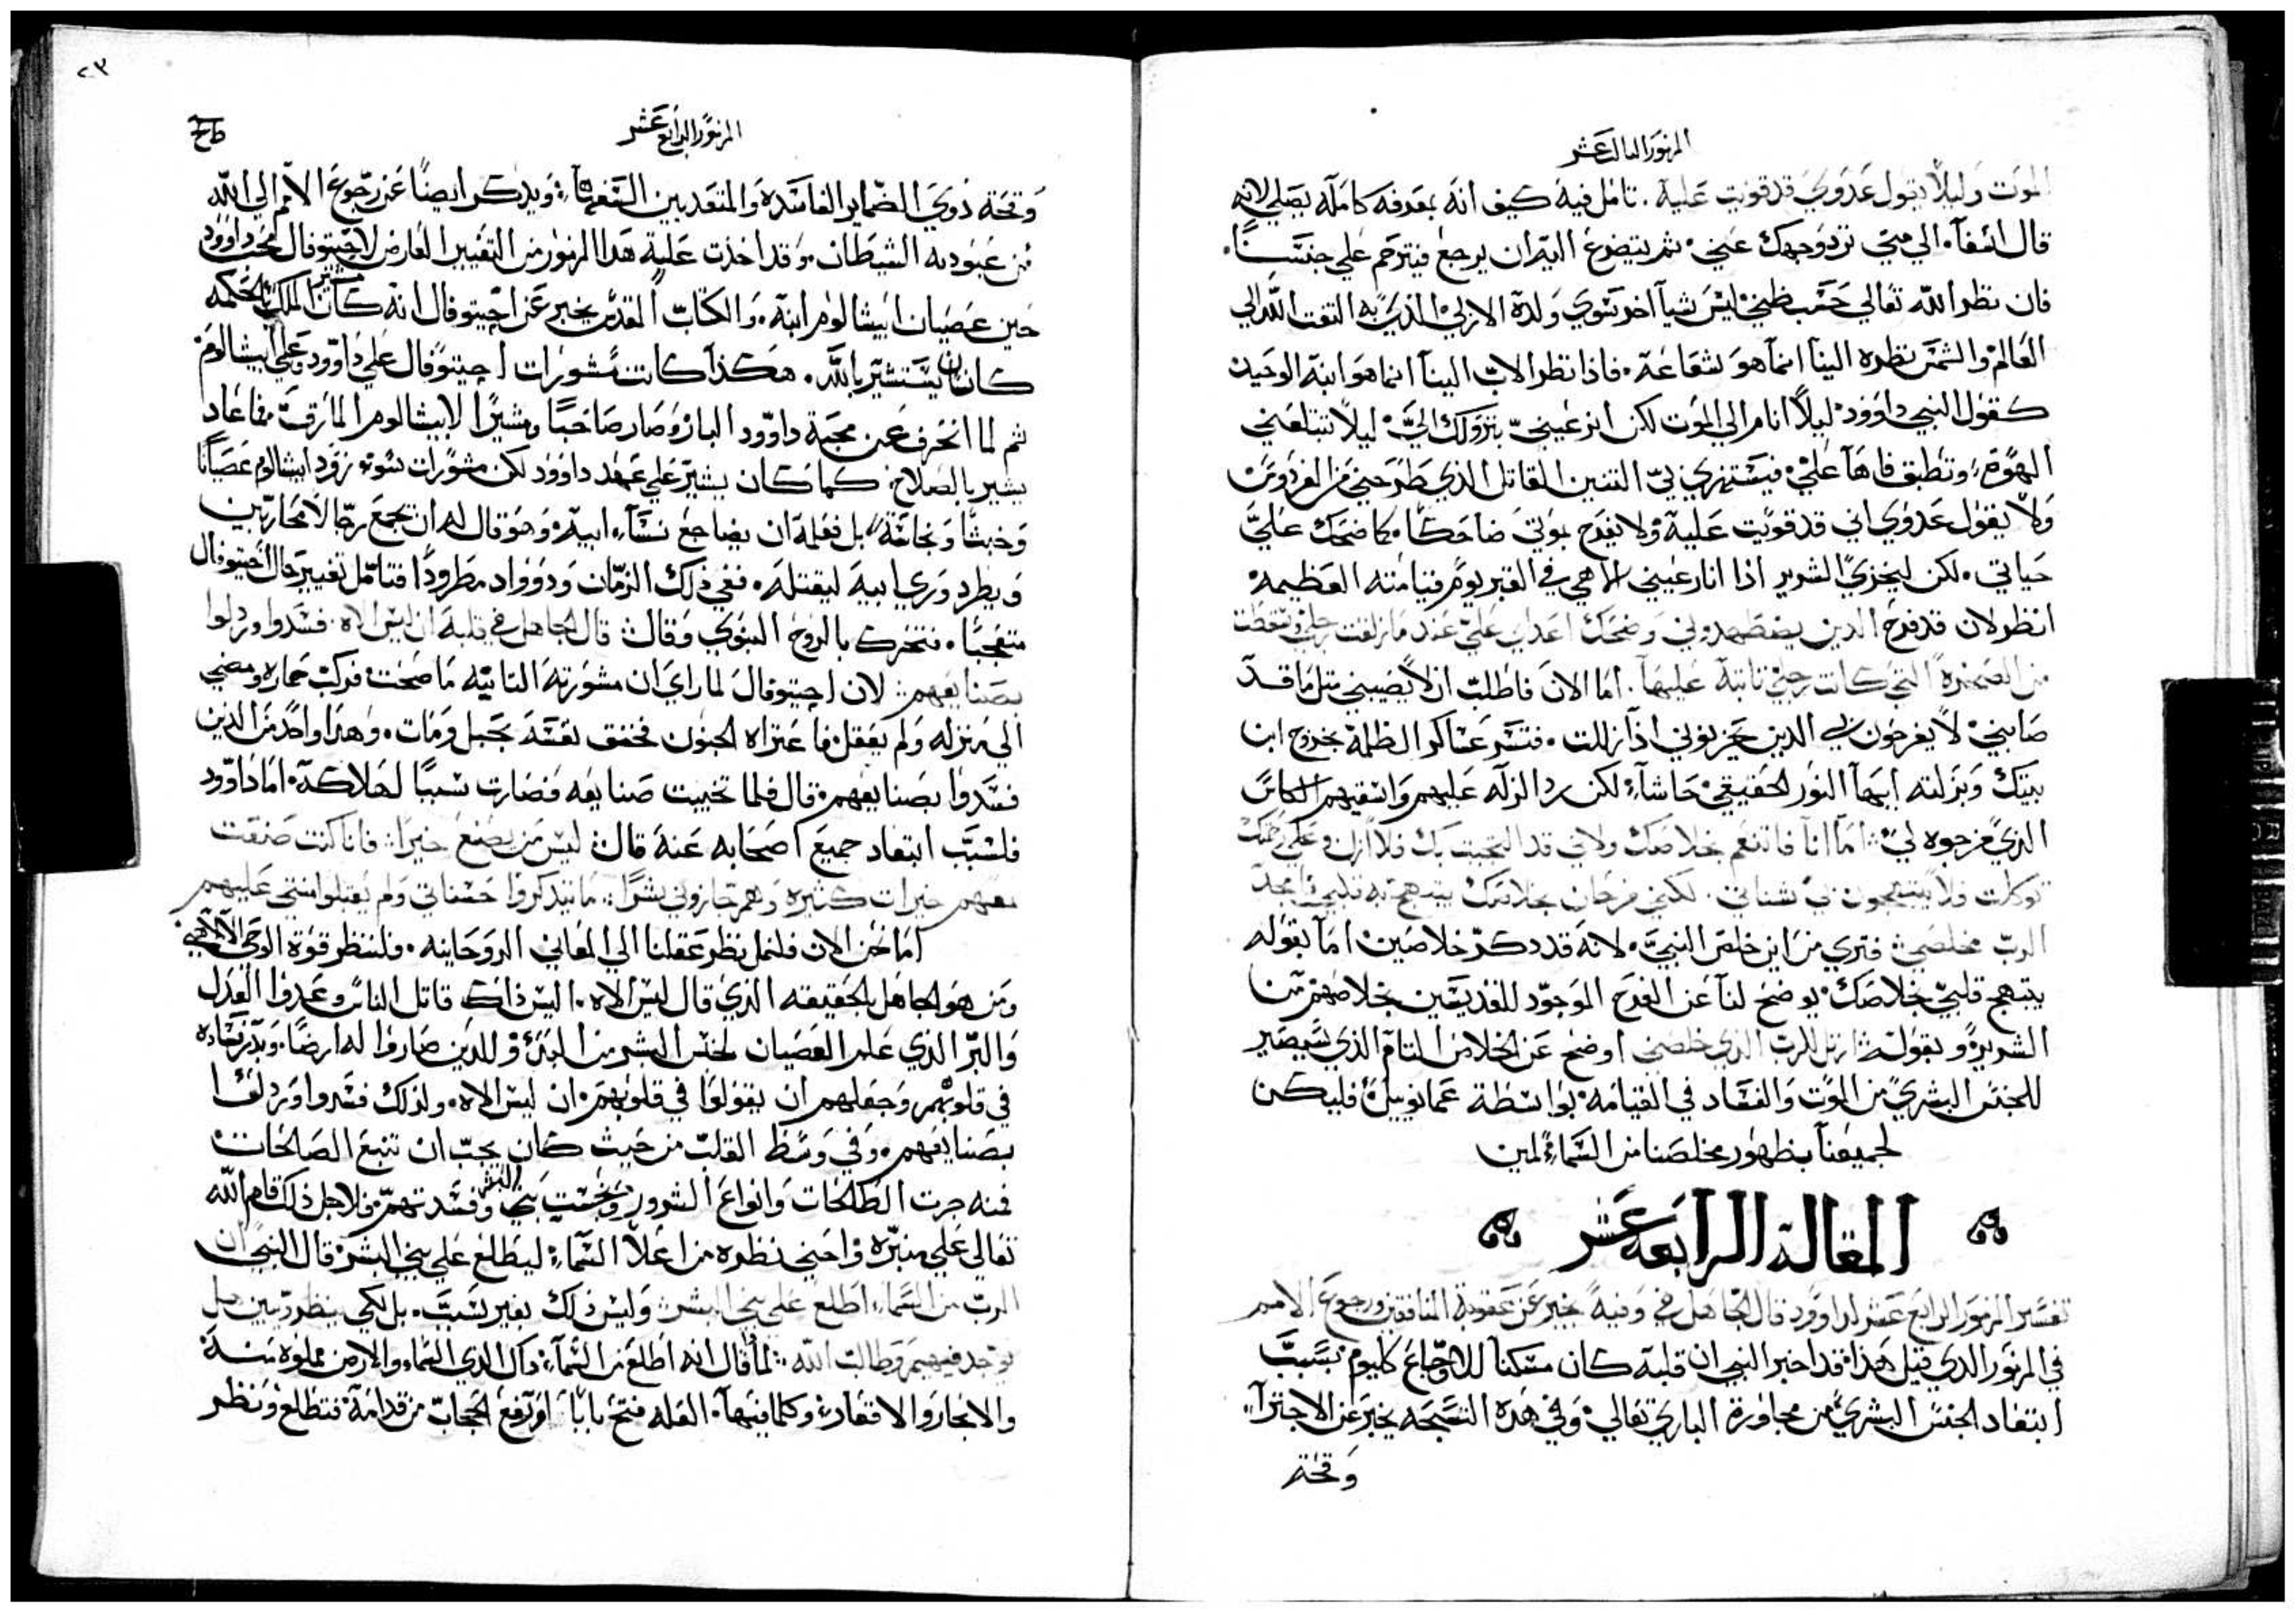 المزمور الثالث عشر
الموت وليلا يقول عدوي قد قويت عليه. تامل فيه كيف انه بمعرفه كامله يصلي لانه
قال اسفا. الي متي ترد وجهك عني. ثم يتضرع اليه ان يرجع فيترحم علي جنسنا.
فان نظر الله تعالي حسب ظني ليس شيا اخر سوي ولده الازلي الذي به التفت الله الي
العالم والشمس نظره الينا انما هو شعاعه. فاذا نظر الاب الينا انما هو ابنه الوحيد
كقول النبي داوود ليلا انام الي الموت لكن انر عيني بنزولك الي ليلا تبتلعني
الهوة وتطبق فاها علي فيستهزي بي التنين القاتل الذي طرحني من الفردوس
ولا يقول عدوي اني قد قويت عليه ولا يفرح بموتي ضاحكا. كما ضحك علي
حياتي. لكن ليخزي الشرير اذا انار عيني الاهي في القبر يوم قيامته العظيمه
انظر لان قد فرح الدين يضطهدوني وضحك اعداي علي عند ما زلقت رجلي وسقطت
من الصخرة التي كانت رجلي ثابتة عليها. اما الان فاطلب ان لا يصيبني مثل ما قد
صابني لا يفرحون بي الدين يحزنوني اذا زللت. فتسر عساكر الظلمة بخروج ابن
بيتك وبزلته ايها النور الحقيقي حاشا لكن رد الزله عليهم واسقيهم الكاس
الدي مزجوه لي اما انا فاتنعم بخلاصك ولاني قد التجيت بك فلا ازل وعلي رحمتك
توكلت فلا يبتهجون في شناني. لكني فرحان بخلاصك يبتهج به قلبي فامجد
الرب مخلصي فتري من اين خلص النبي. لانه قد دكر خلاصين اما بقوله
يبتهج قلبي بخلاصك يوضح لنا عن الفرح الموجود للقديسين بخلاصهم من
الشريره وبقوله ارتل للرب الذي خلصني اوضح عن الخلاص التام الذي سيصير
للجنس البشري من الموت والفساد في القيامه بواسطة عمانوييل فليكن
لجميعنا بظهور مخلصنا من السماء امين
المقالة الرابعة عشر
تفسير المزمور الرابع عشر لداوود قال الجاهل في وفيه يخبر عن عقوبة المنافقين ورجوع الامم
في المزمور الدي قبل هذا قد اخبر النبي ان قلبه كان مسكنا للاوجاع كل يوم بسبب
ابتعاد الجنس البشري من مجاورة الباري تعالي وفي هده التسبحه يخبر عن الاجترا
وقحة
٢٣
المزمور الرابع عشر
وقحة ذوي الضماير الفاسده والمتعدين السفها ويدكر ايضا عن رجوع الامم الي الله
من عبوديه الشيطان. وقد اخذت علية هدا المزمور من التغيير العارض لاحيتوفال محب داوود
حين عصيان ابيشالوم ابنه. والكتاب المقدس يخبر عن احيتوفال انه كان مشير الملك بالحكمه
كان يستشير بالله. هكذا كانت مشورات احيتوفال علي داوود وعلي ابيشالوم
ثم لما انحرف عن محبة داوود البار وصار صاحبا ومشيرا لابيشالوم المارق فما عاد
يشير بالصلاح. كما كان يشير علي عهد داوود لكن مشورات سوء زود ابيشالوم عصيانا
وخبثا ونجاسة بل فعلمه ان يضاجع نساء ابيه وهو قال له ان يجمع رجالا محاربين
ويطرد وري ابيه ليقتله. ففي ذلك الزمان ودوواد مطرودا فتامل تغيير حال احيتوفال
متعجبا. فتحرك بالروح النبوي وقال قال الجاهل في قلبه ان ليس الاه. فسدوا وردلوا
بصنايعهم لان احيتوفال لما راي ان مشورته الثانيه ما صحت فركب حماره ومضي
الي منزله ولم يعقل فاعتراه الجنون فخنق نفسه بحبل ومات. وهدا واحد من الدين
فسدوا بصنايعهم قال فلما تخيبت صنايعه فصارت سببا لهلاكه. اما داوود
فلسبب ابتعاد جميع اصحابه عنه قال ليس من يصنع خيرا فانا كنت صنعت
معهم خيرات كثيره وهم جازوني شرا. ما تدكروا حسناتي ولم يقبلوا مني عليهم
اما نحن الان فلنمل نظر عقلنا الي المعاني الروحانيه. فلننظر قوة الوحي الالاهي
ومن هو الجاهل بالحقيقه الذي قال ليس الاه. اليس ذاك قاتل الناس وعدو العدل
والبر الذي علم العصيان لجنس البشر من البدء وللدين صاروا له ارضا. وبدر فساده
في قلوبهم وجعلهم ان يقولوا في قلوبهم ان ليس الاه. ولدلك فسدوا وردلوا
بصنايعهم. وفي وسط القلب من حيث كان يجب ان تنبع الصالحات
فمنه جرت الطالحات وانواع الشرور ونجست بني البشر وفسدتهم. فلاجل ذلك قام الله
تعالي علي منبره واحني نظره من اعلا السماء ليطلع علي بني البشر قال النبي ان
الرب من السماء اطلع علي بني البشر وليس ذلك بغير سبب. بل لكي ينظر ويبين هل
يوجد فيهم وطالب الله لما قال انه اطلع من السماء. وكان الدي السماء والارض مملوه منه
والابحار والاقفار وكلما فيها. العله فتح بابا او رفع الحجاب من قدامه فتطلع ونظر